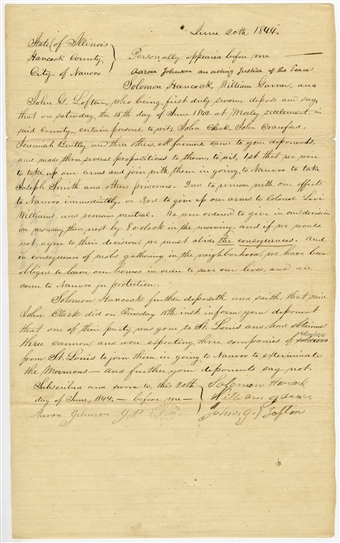 June 20th 1844.
State of Illinois
Hancock County
City of Nauvoo
Personally appeared before me
Aaron Johnson an acting Justice of the Peace
Solomon Hancock, William Garner, and
John G. Lofton, who being first duly sworn depose and say,
that on saturday, the 15th day of June 1844 at Morley settlement in
said County, certain persons to wit; John Clark, John Crawford,
Jeremiah Bentley and three others, all farmers, came to your deponents,
and made them several propositions to them to wit, 1st that we were
to take up our arms and join with them in going to Nauvoo to take
Joseph Smith and others prisoners. 2nd to remove with our effects
to Nauvoo immediately, or 3rd to give up our arms to Colonel Levi
Williams and remain neutral. We were ordered to give in our decision
on monday then next by 8 o'clock in the morning, and if we would
not agree to their decision we must abide the consequences. And
in consequence of mob gathering in the neighborhood, we have been
obliged to leave our houses in order to save our lives, and are
come to Nauvoo for protection.
Solomon Hancock further deposeth and saith that said
John Clark did on Tuesday inst inform your deponent
that one of their party was gone to St. Louis and had obtained
three cannon and were expecting three companies of
from St. Louis to join them in going to Nauvoo to exterminate
the Mormons — and further your deponents say not.
Subscribed and sworn to, this 20th
day of June, 1844 — before me —
Aaron Johnson J.P.
Solomon Hancock
William
John G Lofton